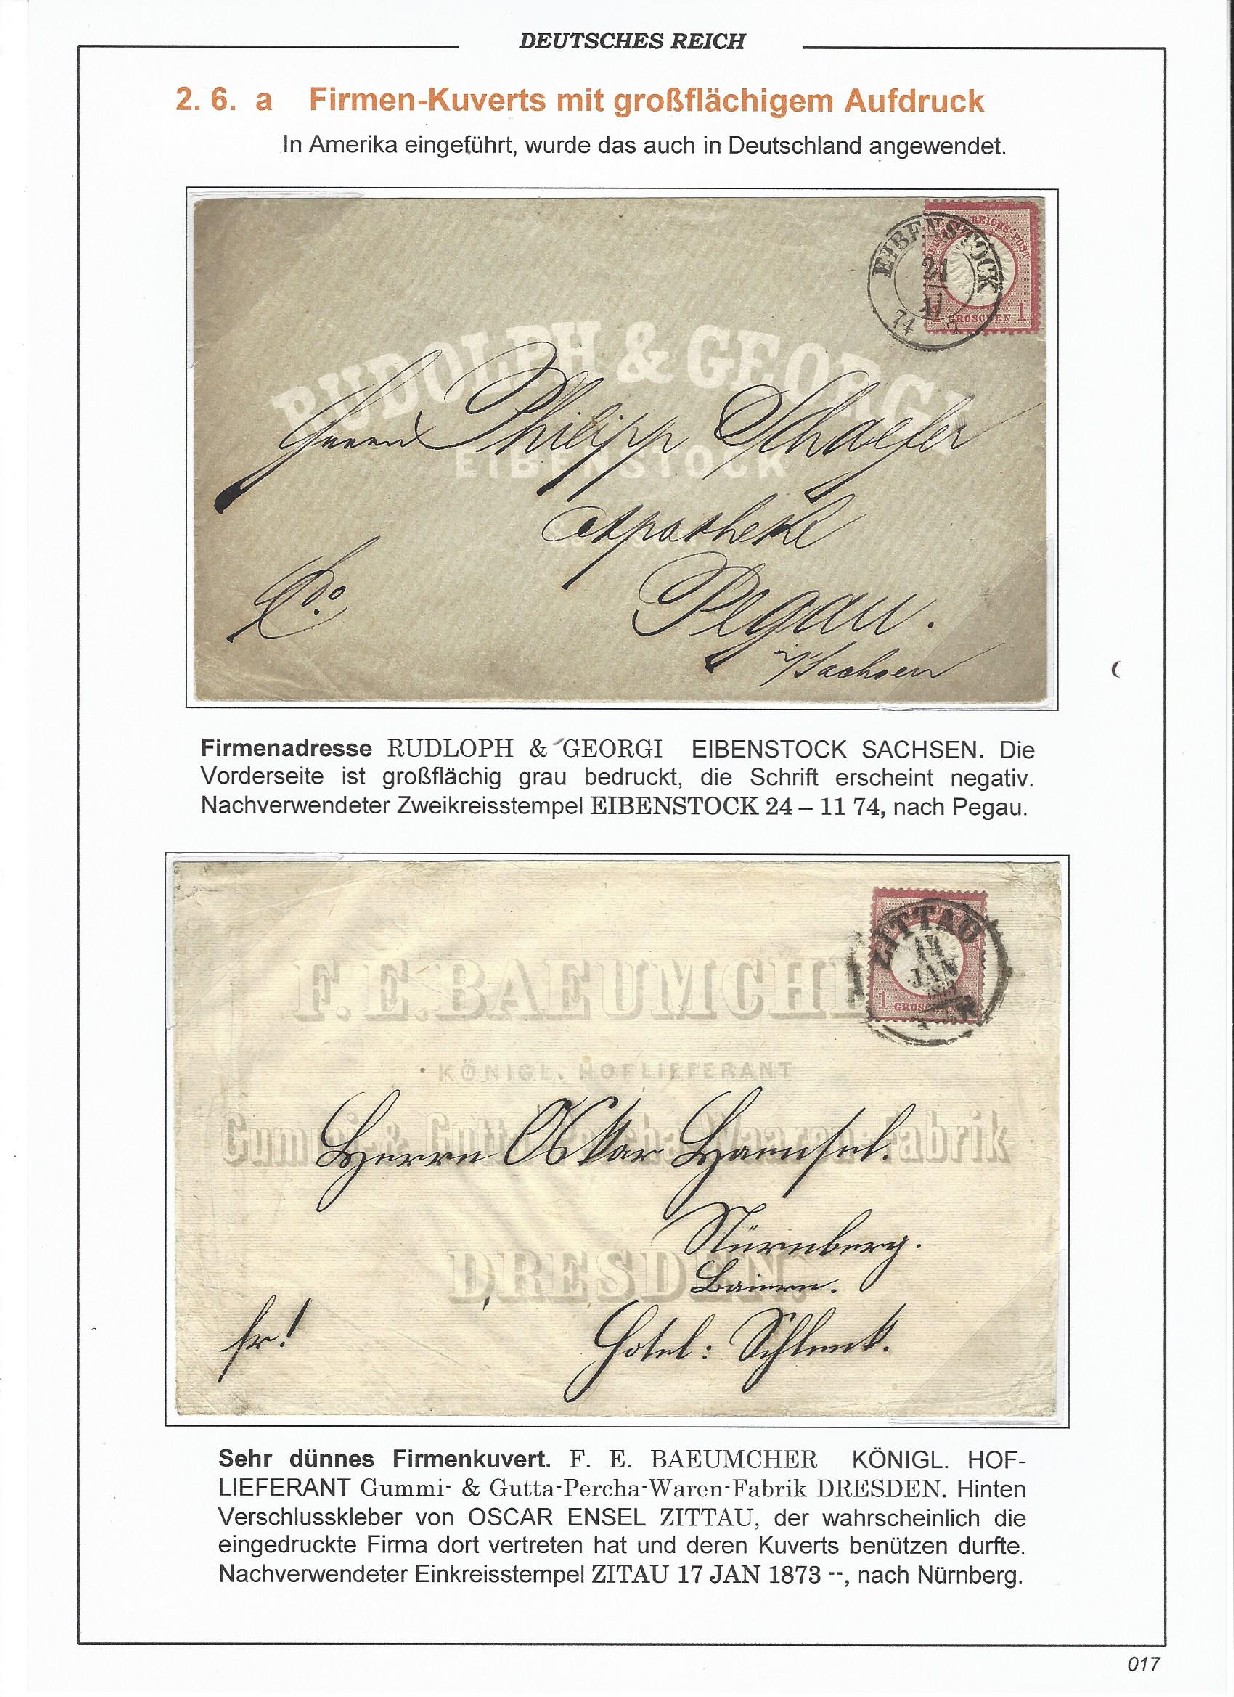 DEUTSCHES REICH
2. 6. a Firmen-Kuverts mit großflächigem Aufdruck
In Amerika eingeführt, wurde das auch in Deutschland angewendet.
EIBENSTOCK
74
GROSCHEN 1
RUDOLPH & GEORGI
EIBENSTOCK
Herrn Philipp Schaefer
Apotheke
Pegau.
i/Sachsen
Firmenadresse RUDLOPH & GEORGI EIBENSTOCK SACHSEN. Die
Vorderseite ist großflächig grau bedruckt, die Schrift erscheint negativ.
Nachverwendeter Zweikreisstempel EIBENSTOCK 24 – 11 74, nach Pegau.
ZITTAU
JAN
F. E. BAEUMCHE
KÖNIGL. HOFLIEFERANT
Gummi- & Gutta-Percha-Waaren-Fabrik
DRESDEN.
Herrn Oskar Haensel.
Nürnberg.
Baiern.
fr!
Hotel: Schlenk.
Sehr dünnes Firmenkuvert. F. E. BAEUMCHER KÖNIGL. HOF-
LIEFERANT Gummi- & Gutta-Percha-Waren-Fabrik DRESDEN. Hinten
Verschlusskleber von OSCAR ENSEL ZITTAU, der wahrscheinlich die
eingedruckte Firma dort vertreten hat und deren Kuverts benützen durfte.
Nachverwendeter Einkreisstempel ZITAU 17 JAN 1873 --, nach Nürnberg.
017